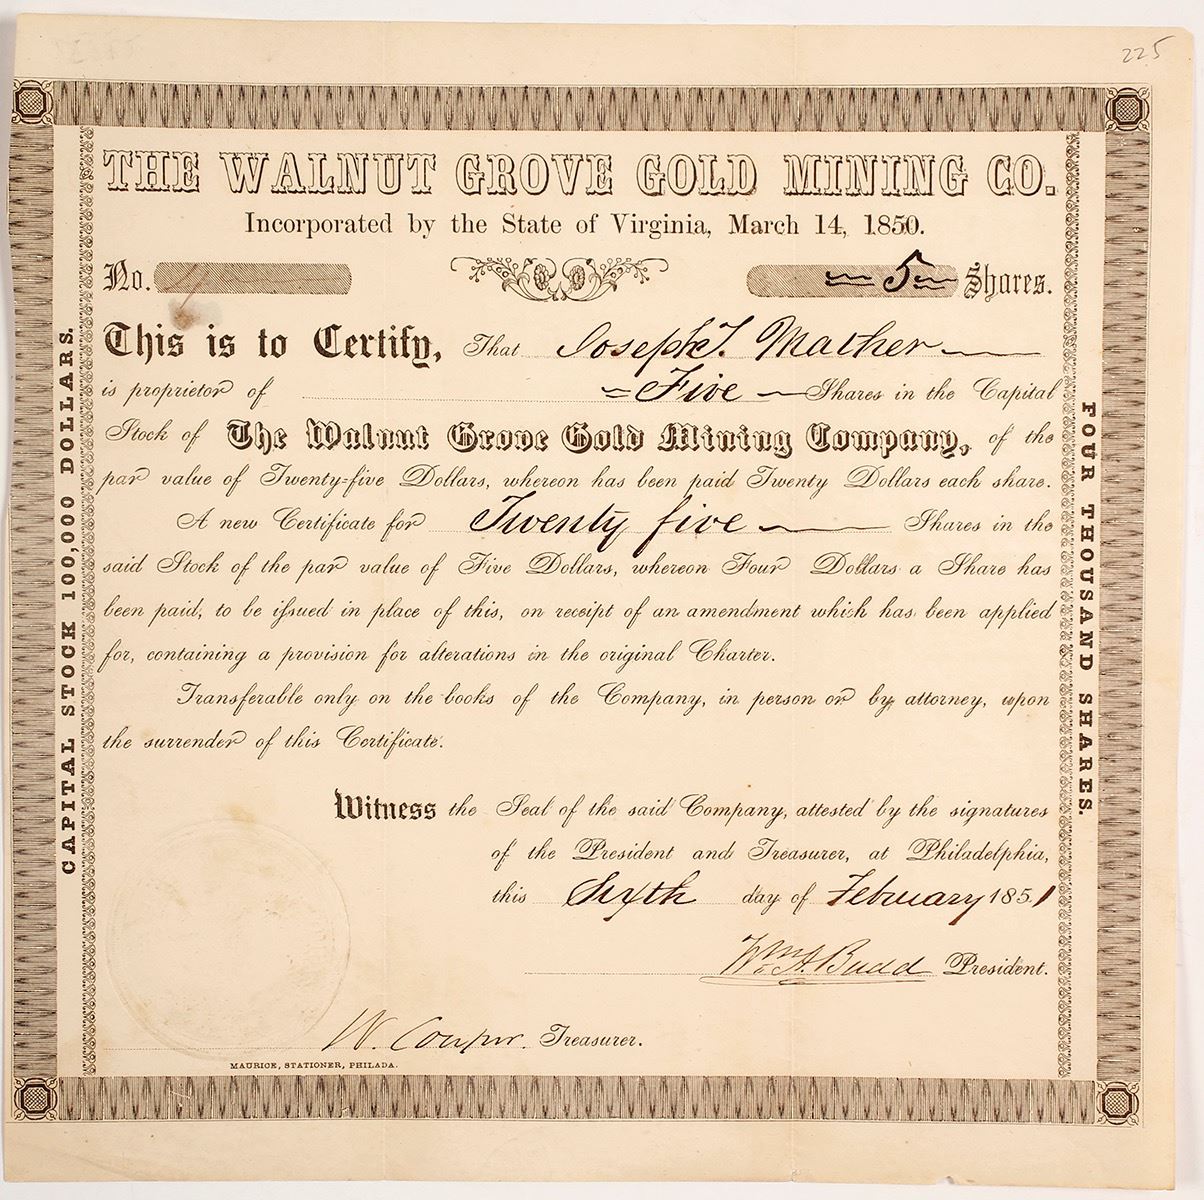 225
THE WALNUT GROVE GOLD MINING CO.
Incorporated by the State of Virginia, March 14, 1850.
No. 5 Shares.
This is to Certify, That Joseph T. Mather
is proprietor of Five Shares in the Capital
Stock of The Walnut Grove Gold Mining Company, of the
par value of Twenty-five Dollars, whereon has been paid Twenty Dollars each share.
A new Certificate for Twenty five Shares in the
said Stock of the par value of Five Dollars, whereon Four Dollars a Share has
been paid, to be issued in place of this, on receipt of an amendment which has been applied
for, containing a provision for alterations in the original Charter.
Transferable only on the books of the Company, in person or by attorney, upon
the surrender of this Certificate.
Witness the Seal of the said Company, attested by the signatures
of the President and Treasurer, at Philadelphia,
this Sixth day of February 1851
Wm. A. Budd President.
W. Treasurer.
MAURICE, STATIONER, PHILADA.
CAPITAL STOCK 100,000 DOLLARS.
FOUR THOUSAND SHARES.